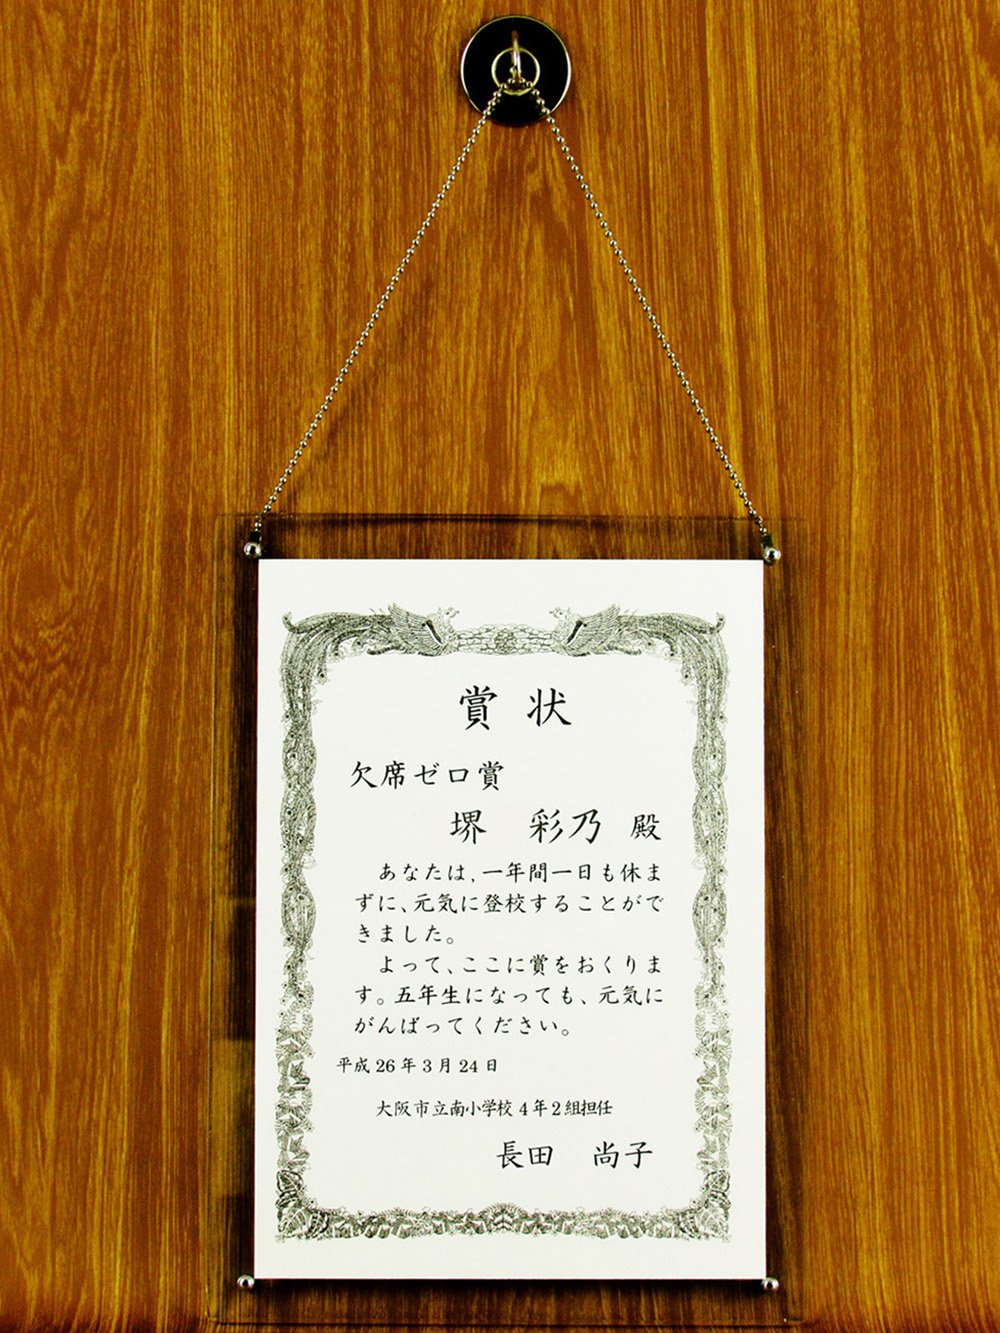 賞状
欠席ゼロ賞
堺　彩乃 殿
あなたは,一年間一日も休ま
ずに、元気に登校することがで
きました。
よって、ここに賞をおくりま
す。五年生になっても、元気に
がんばってください。
平成26年3月24日
大阪市立南小学校4年2組担任
長田　尚子